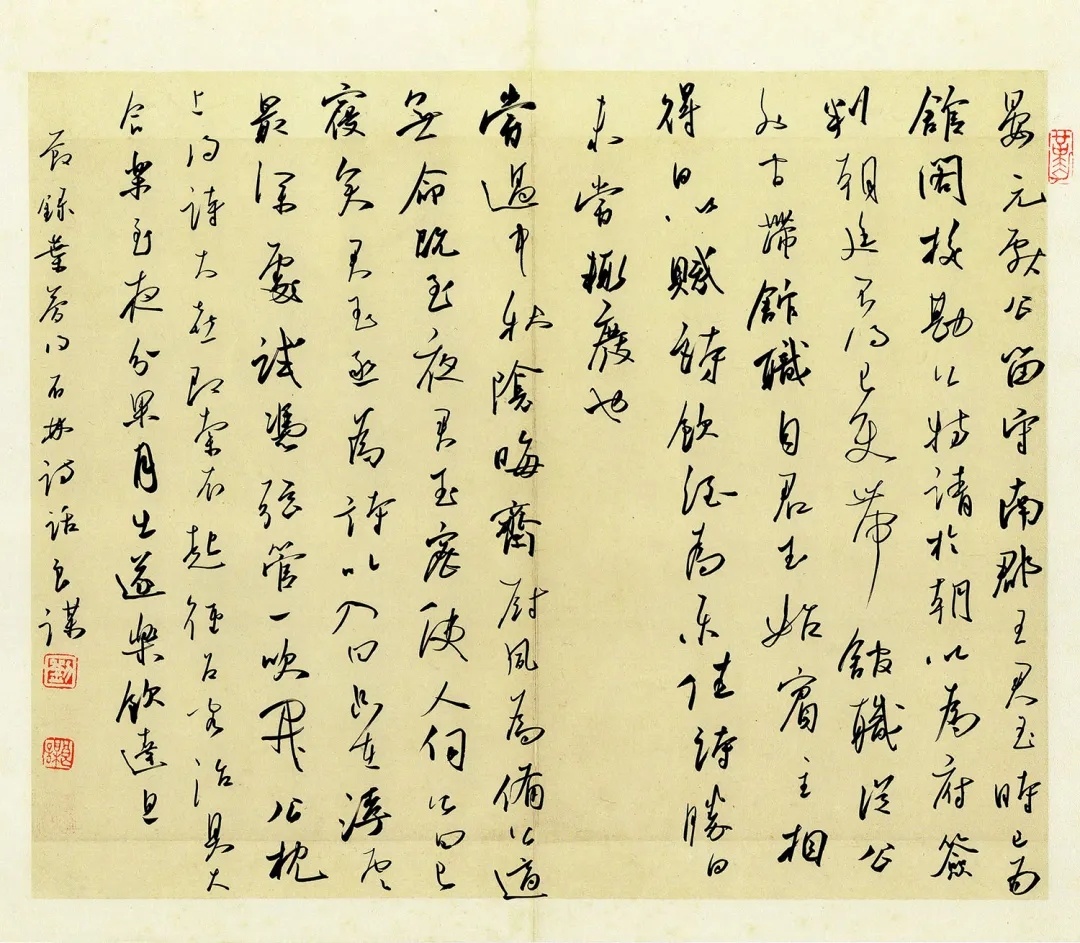 晏元獻公留守南郡王君玉時已為
館閣校勘公特請於朝以為府簽
判朝廷不得已使帶館職從公
外官帶館職自君玉始賓主相
得日以賦詩飲酒為樂佳詩勝日
未嘗輒廢也
嘗遇中秋陰晦齋廚夙為備公適
無命既至夜君玉密使人伺公曰已
寢矣君玉亟為詩以入曰只在浮雲
最深處試憑弦管一吹開公枕
上得詩大喜即索衣起徑召客治具大
合樂至夜分果月出遂樂飲達旦
節錄葉夢得石林詩話良謀